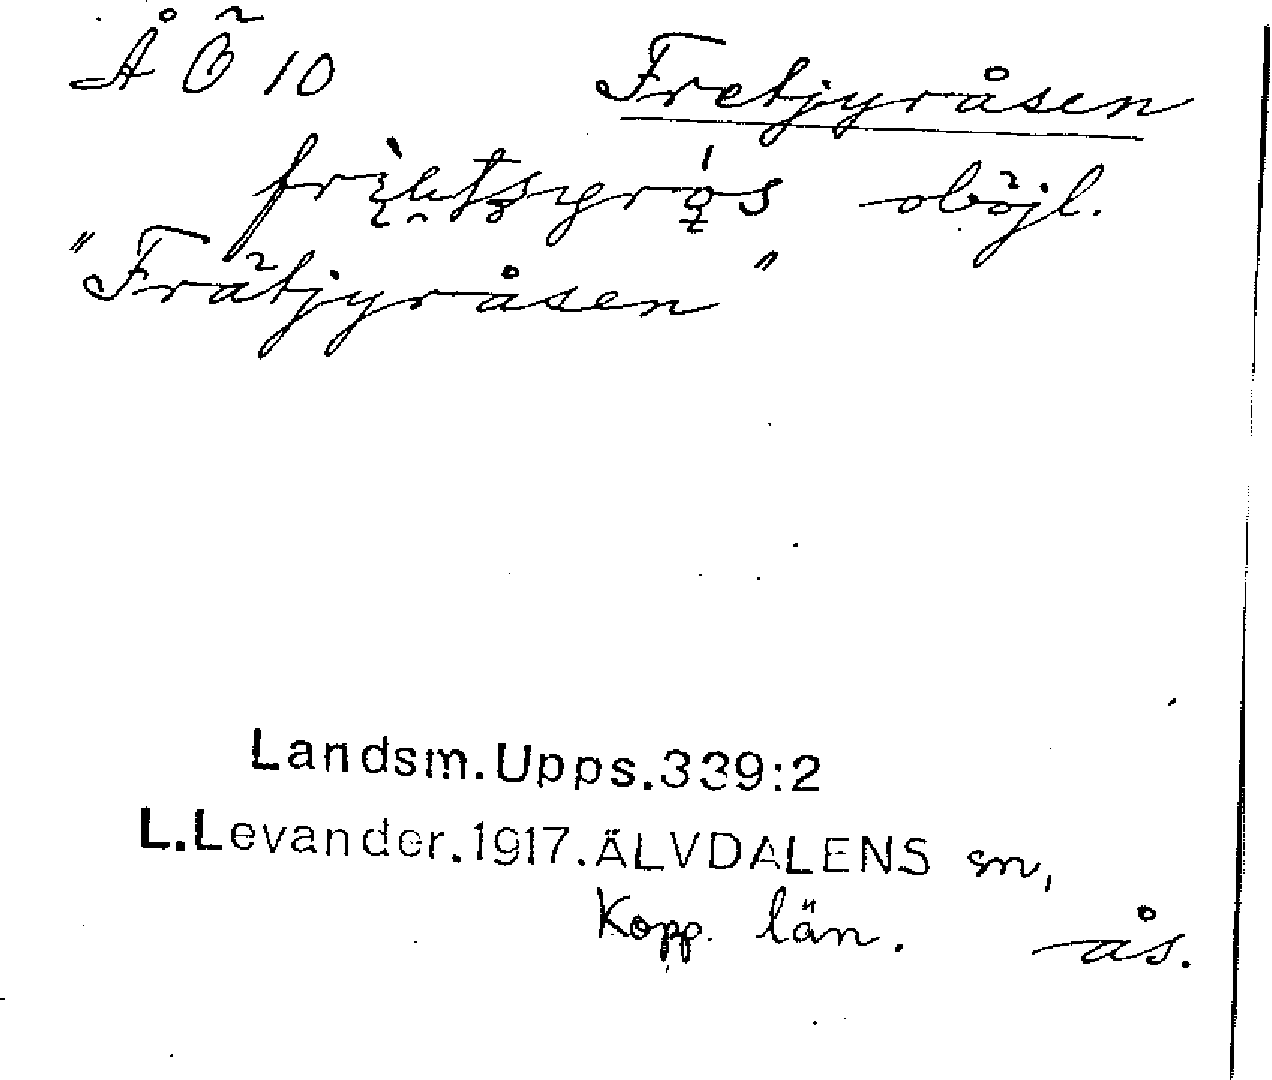 Å Ö 10 Fretjyråsen
oböjl.
"Frätjyråsen"
Landsm.Upps.339:2
L.Levander.1917.ÄLVDALENS sn,
Kopp. län. ås.